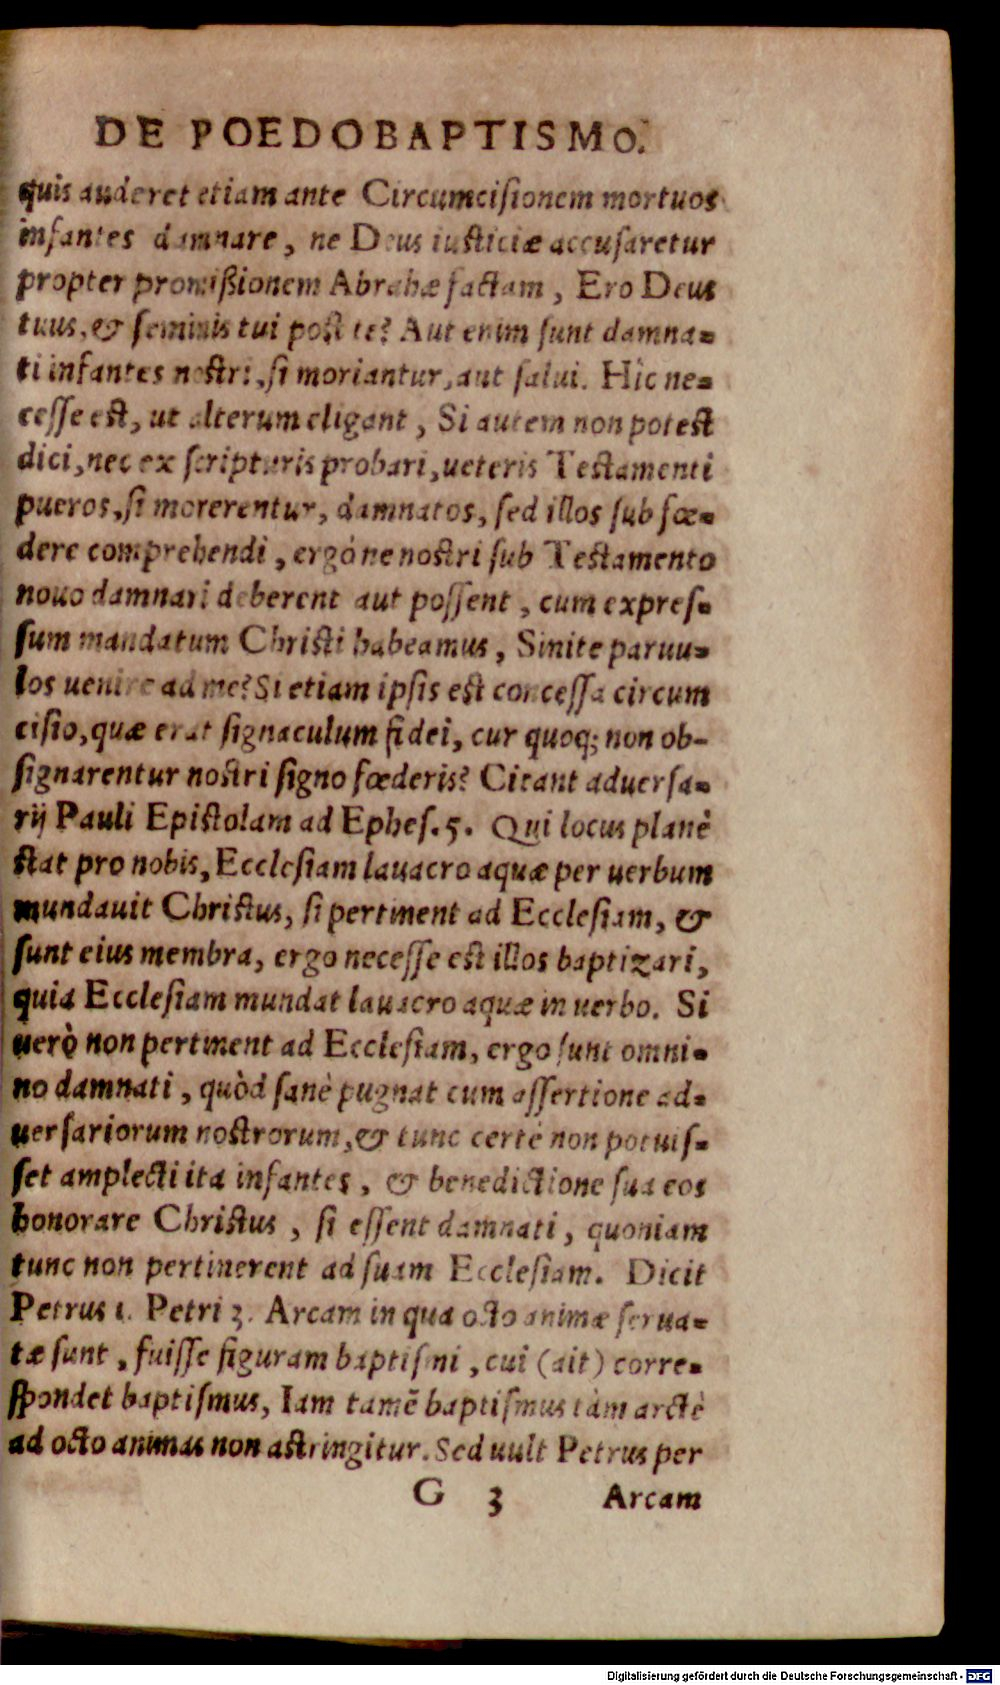 DE POEDOBAPTISMO.
quis auderet etiam ante Circumcisionem mortuos
infantes damnare, ne Deus iusticiæ accusaretur
propter promißionem Abrahæ factam, Ero Deus
tuus, & seminis tui post te? Aut enim sunt damna-
ti infantes nostri, si moriantur, aut salui. Hic ne-
cesse est, ut alterum eligant, Si autem non potest
dici, nec ex scripturis probari, ueteris Testamenti
pueros, si morerentur, damnatos, sed illos sub fœ-
dere comprehendi, ergóne nostri sub Testamento
nouo damnari deberent aut possent, cum expres-
sum mandatum Christi habeamus, Sinite paruu-
los uenire ad me? Si etiam ipsis est concessa circum
cisio, quæ erat signaculum fidei, cur quoq; non ob-
signarentur nostri signo fœderis? Citant aduersa-
rij Pauli Epistolam ad Ephes. 5. Qui locus planè
stat pro nobis, Ecclesiam lauacro aquæ per uerbum
mundauit Christus, si pertinent ad Ecclesiam, &
sunt eius membra, ergo necesse est illos baptizari,
quia Ecclesiam mundat lauacro aquæ in uerbo. Si
uerò non pertinent ad Ecclesiam, ergo sunt omni-
no damnati, quòd sanè pugnat cum assertione ad-
uersariorum nostrorum, & tunc certè non potuis-
set amplecti ita infantes, & benedictione sua eos
honorare Christus, si essent damnati, quoniam
tunc non pertinerent ad suam Ecclesiam. Dicit
Petrus 1. Petri 3. Arcam in qua octo animæ serua-
tæ sunt, fuisse figuram baptismi, cui (ait) corre-
spondet baptismus, Iam tamē baptismus tàm arctè
ad octo animas non astringitur. Sed uult Petrus per
G 3 Arcam
Digitalisierung gefördert durch die Deutsche Forschungsgemeinschaft - DFG